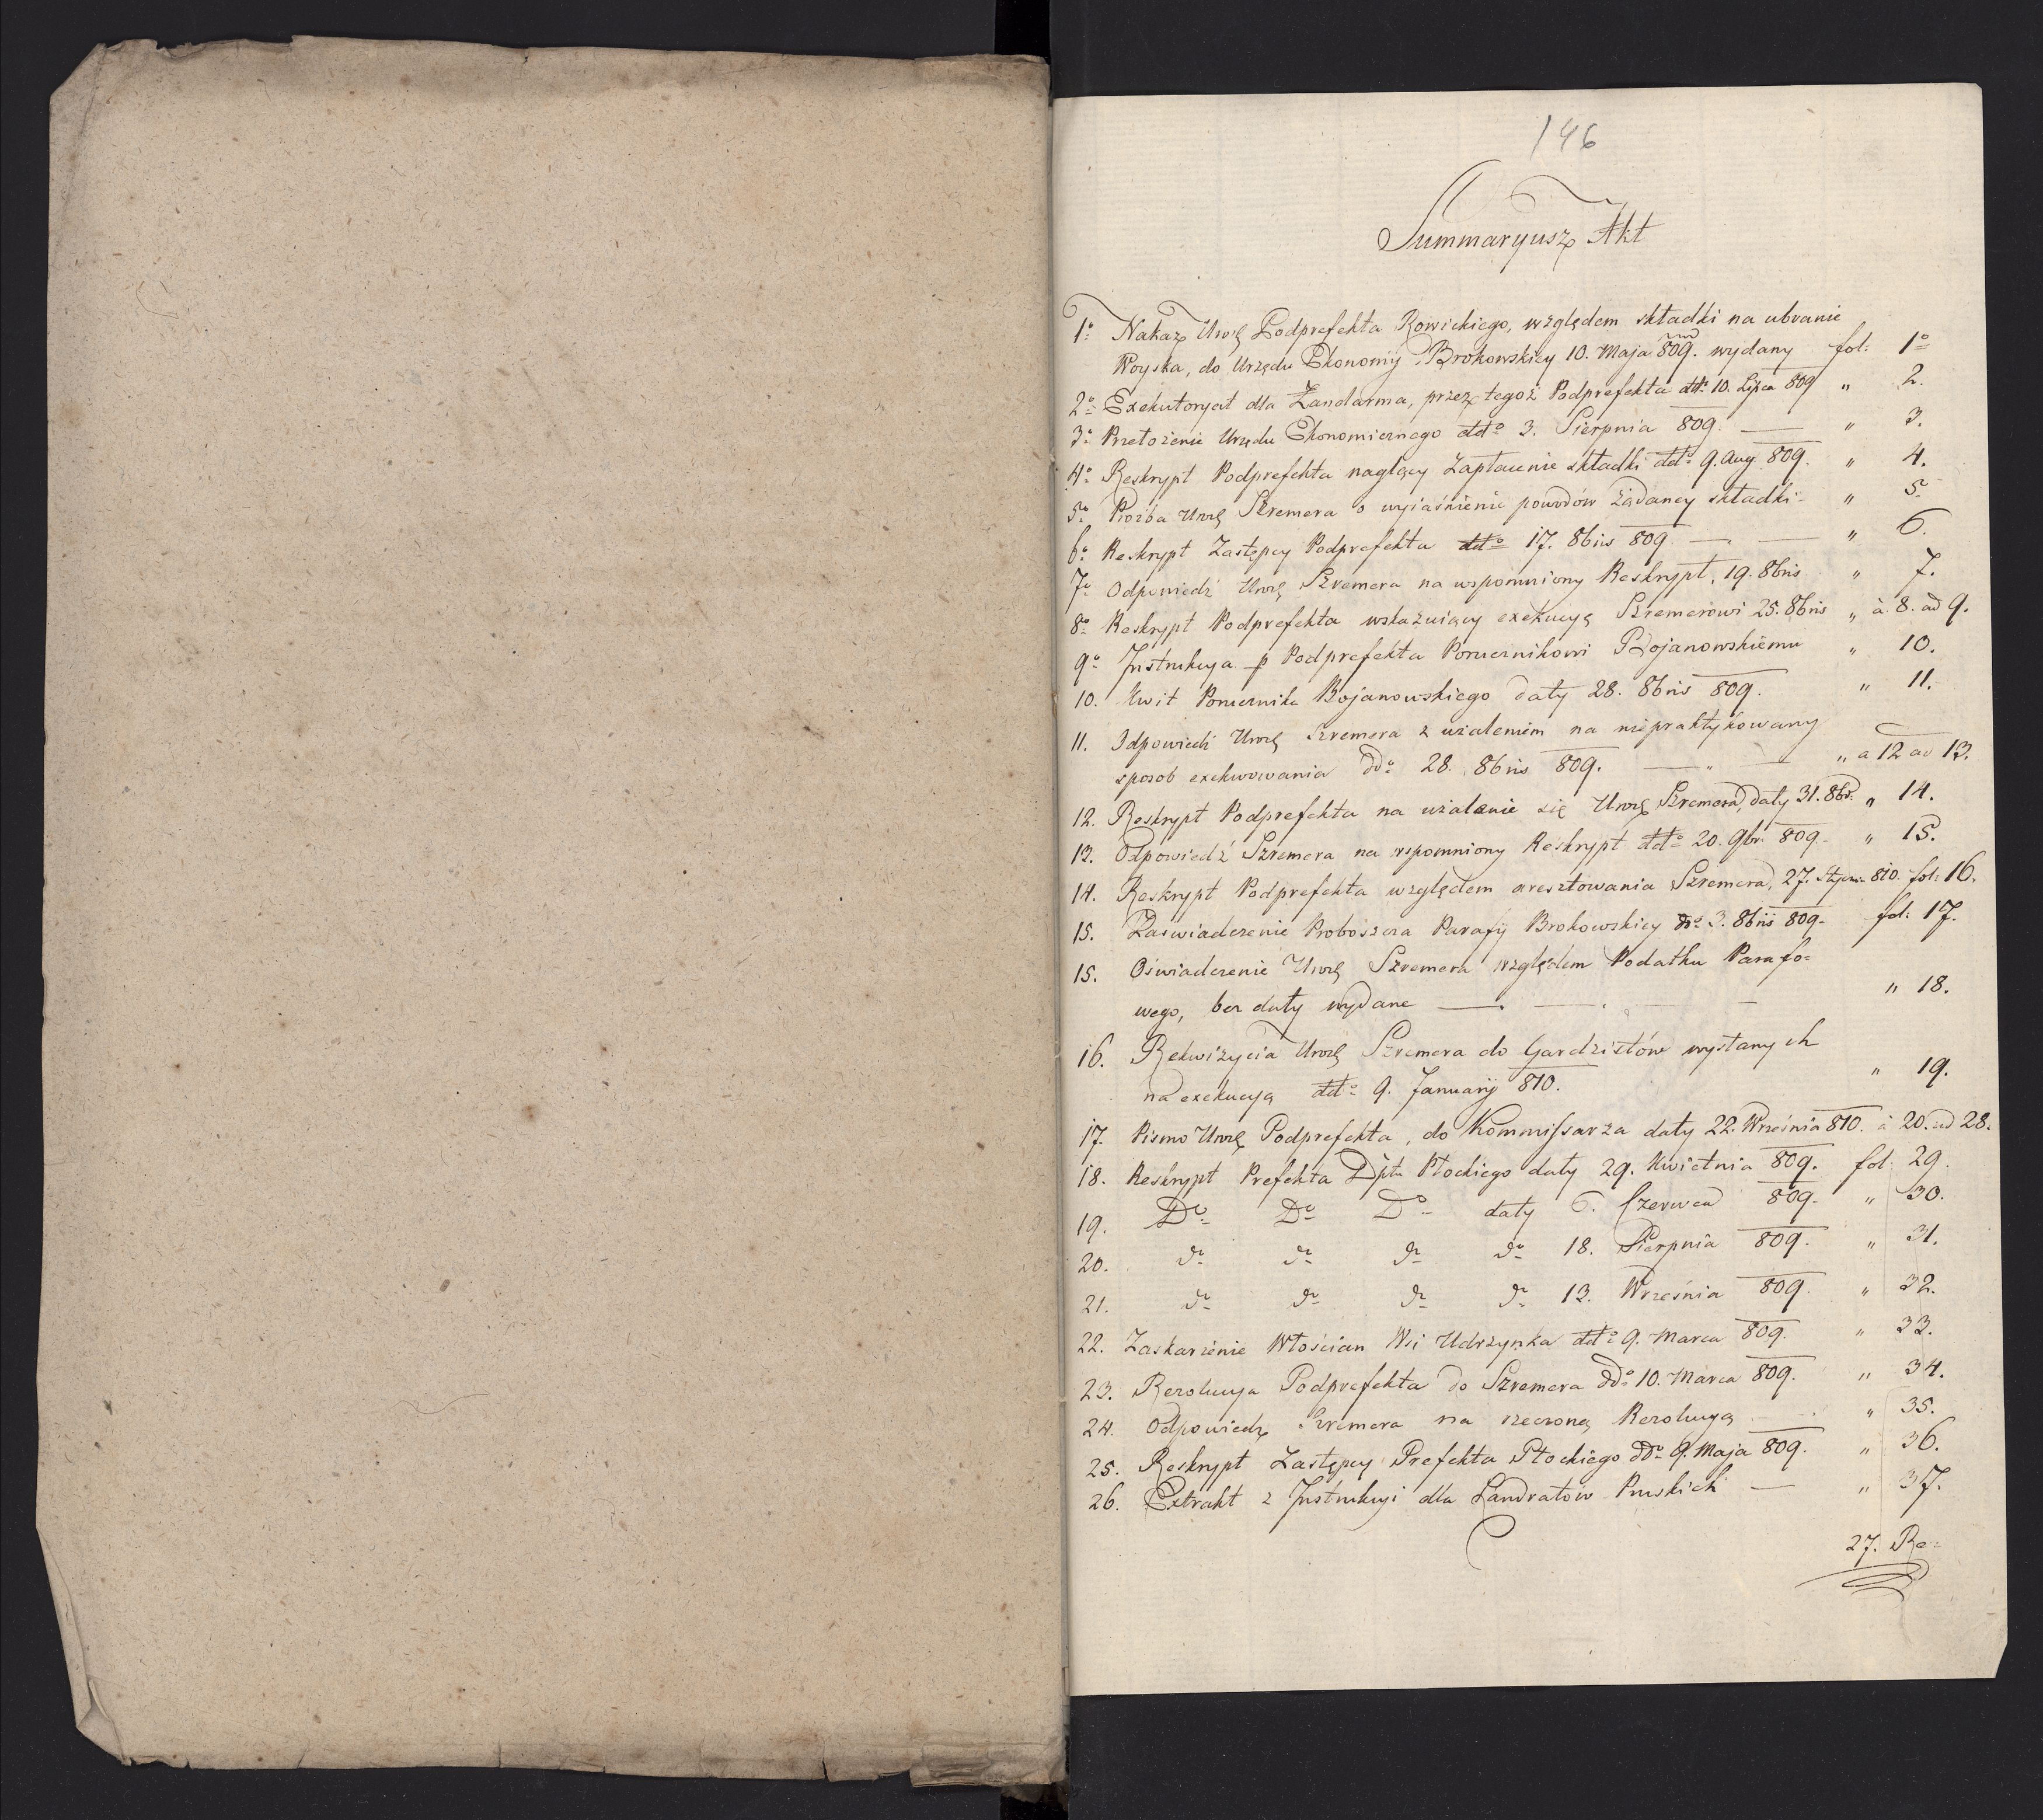 146
Summaryusz Akt
1o Nakaz Urzę Podprefekta Rowickiego, względem składki na ubranie
Woyska, do Urzędu Ekonomij Brokowskiey 10. Maja 809. wydany fol: 1o
2o Exekutoryat dla Żandarma, przez tegoż Podprefekta ddto 10. Lipca 809 " 2.
3o Przełożenie Urzędu Ekonomicznego ddto 3. Sierpnia 809. — " 3.
4o Reskrypt Podprefekta naglący zapłacenie składki ddto 9. Aug. 809. " 4.
5o Prożba Urzę Szremera o wyiaśnienie powodów żądaney składki - " 5.
6o Reskrypt Zastępcy Podprefekta ddto 17. 8bris 809. — — " 6.
7o Odpowiedź Urzę Szremera na wspomniony Reskrypt, 19. 8bris " 7.
8o Reskrypt Podprefekta wskazuiący exekucyą Szremerowi 25. 8bris " à 8. ad 9.
9o Instrukcya p Podprefekta Porucznikowi Bojanowskiemu " 10.
10. Kwit Porucznika Bojanowskiego daty 28. 8bris 809. " 11.
11. Odpowiedź Urzę Szremera z użaleniem na niepraktykowany
sposob exekwowania ddo 28. 8bris 809. — " — " a 12 ad 13.
12. Reskrypt Podprefekta na użalenie się Urzę Szremera, daty 31. 8br. " 14.
13. Odpowiedź Szremera na wspomniony Reskrypt ddto 20. 9br. 809. " 15.
14. Reskrypt Podprefekta względem aresztowania Szremera, 27. Stycz. 810. fol: 16.
15. Zaswiadczenie Proboszcza Parafij Brokowskiey ddo 3. 8bris 809. fol: 17.
15. Oświadczenie Urzę Szremera względem Podatku Parafo=
wego, bez daty wydane —. —. — " 18.
16. Rekwizycia Urzę Szremera do Gardzistów wysłanych
na exekucyą ddto 9. Januarij 810. " 19.
17. Pismo Urzę Podprefekta, do Kommissarza daty 22. Września 810. à 20. ad 28.
18. Reskrypt Prefekta Dptu Płockiego daty 29. Kwietnia 809. fol: 29.
19. Do Do Do daty 6. Czerwca 809. " 30.
20. do do do do 18. Sierpnia 809. " 31.
21. do do do do 13. Września 809. " 32.
22. Zaskarżenie Włościan Wsi Udrzynka ddto 9. Marca 809. " 33.
23. Rezolucya Podprefekta do Szremera ddo 10. Marca 809. " 34.
24. Odpowiedz Szremera na rzeczoną Rezolucyą — " 35.
25. Reskrypt Zastępcy Prefekta Płockiego ddo 9. Maja 809. " 36.
26. Extrakt z Instrukcyi dla Landratów Pruskich — " 37.
27. Re=